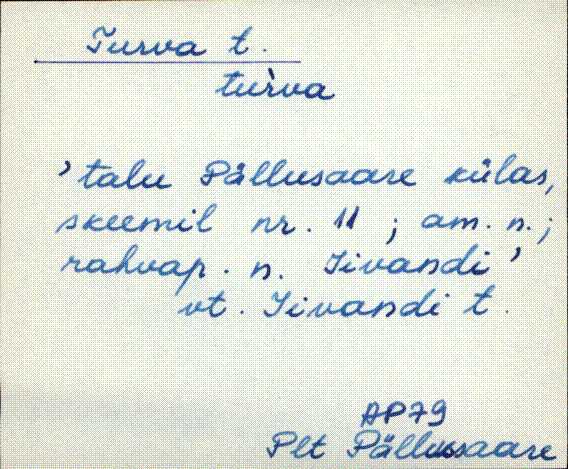 Turva t.
tuŕva
'talu Pällusaare külas,
skeemil nr. 11 ; am. n. ;
rahvap. n. Iivandi'
vt. Iivandi t.
AP79
Plt Pällusaare